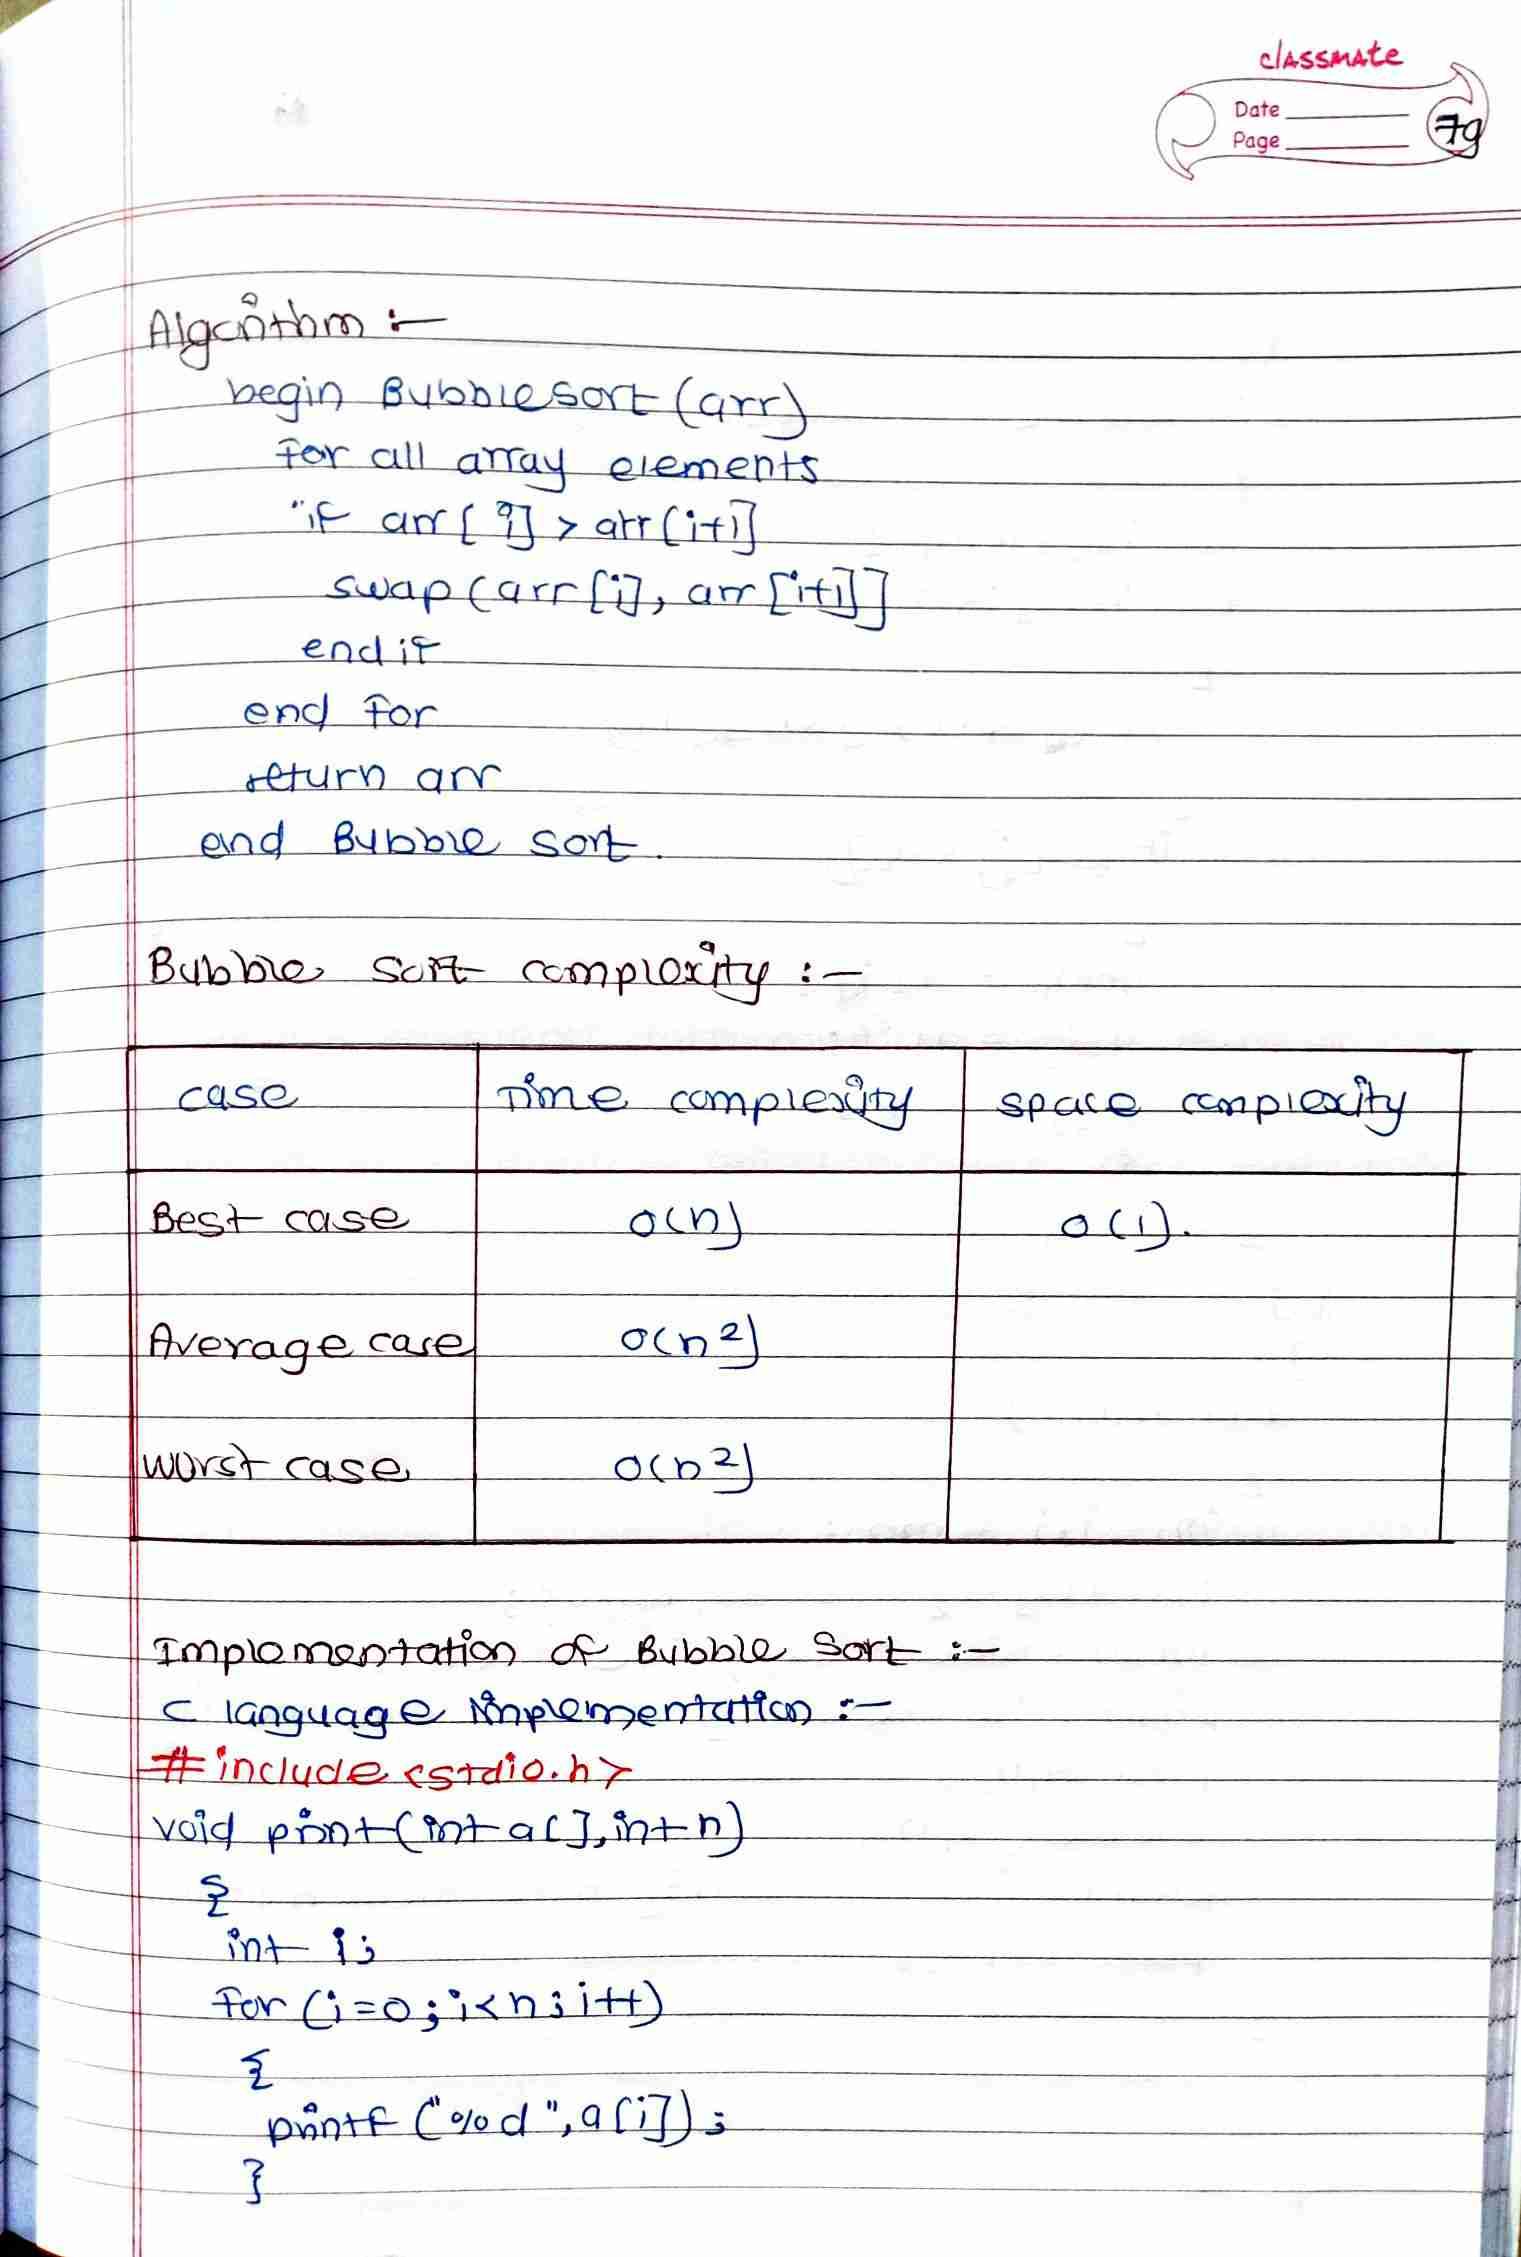 classmate
Date
Page
79
Algorithm :-
begin BubbleSort (arr)
for all array elements
if arr[i] > arr[i+1]
swap(arr[i], arr[i+1]]
end if
end for
return arr
end Bubble sort.
Bubble Sort complexity :-
case Time complexity space complexity
Best case O(n) O(1).
Average case O(n²)
worst case O(n²)
Implementation of Bubble Sort :-
C language implementation :-
#include <stdio.h>
void print(int a[], int n)
{
int i;
for (i=0; i<n; i++)
{
printf ("%d", a[i]);
}